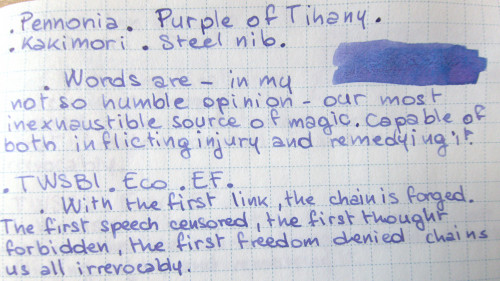 . Pennonia. Purple of Tihany.
. Kakimori. Steel nib.
. Words are - in my
not so humble opinion - our most
inexhaustible source of magic. Capable of
both inflicting injury and remedying it.
. TWSBI. Eco. EF.
. With the first link, the chain is forged.
The first speech censored, the first thought
forbidden, the first freedom denied chains
us all irrevocably.